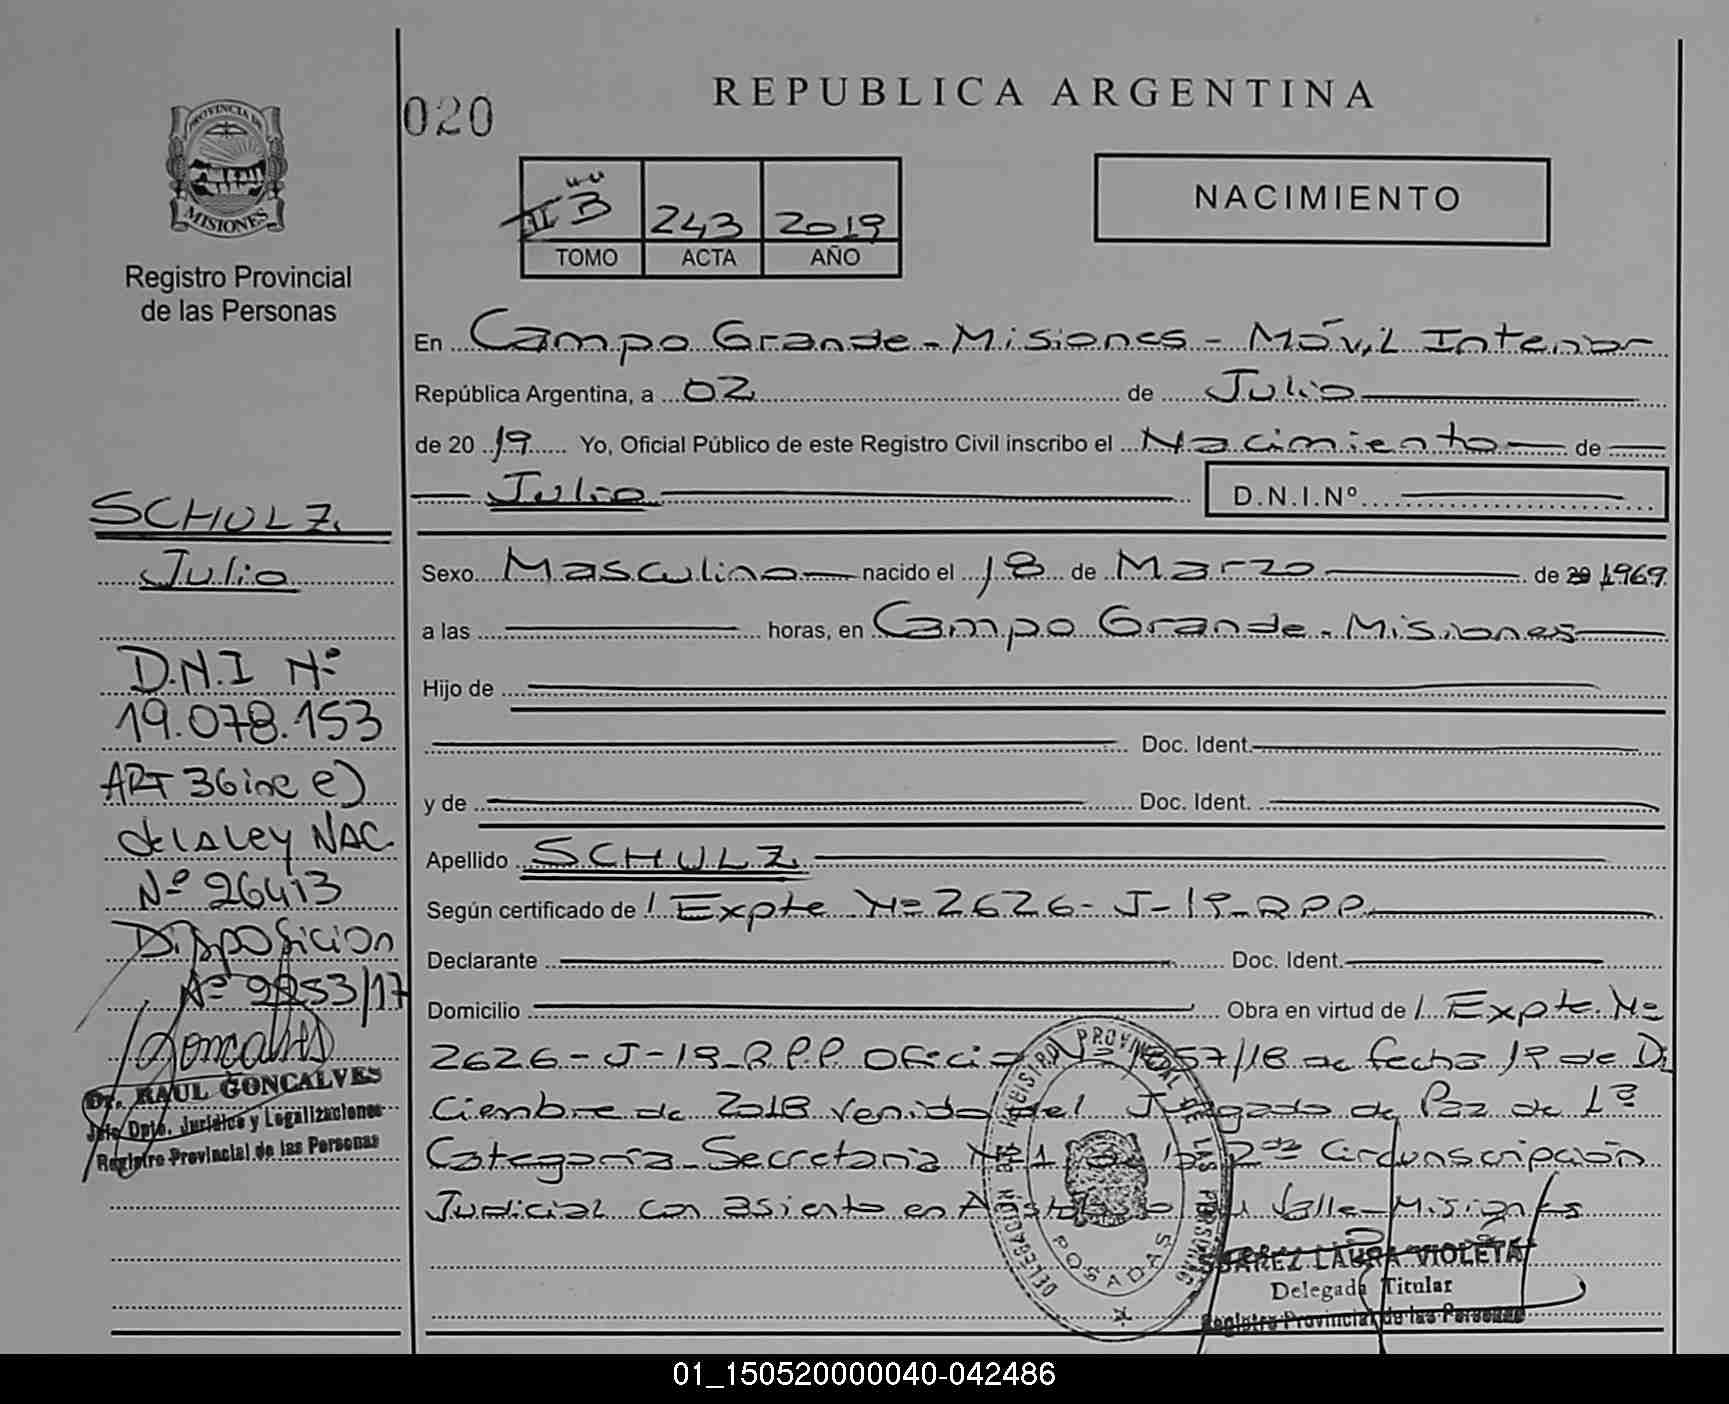 020
REPUBLICA ARGENTINA
PROVINCIA DE
MISIONES
Registro Provincial
de las Personas
II B 243 2019
TOMO ACTA AÑO
NACIMIENTO
En Campo Grande - Misiones - Móvil Interior
República Argentina, a 02 de Julio
de 20 19 Yo, Oficial Público de este Registro Civil inscribo el Nacimiento de
Julio D.N.I.Nº
Sexo Masculino nacido el 18 de Marzo de 20 1969
a las horas, en Campo Grande - Misiones
Hijo de
Doc. Ident.
y de Doc. Ident.
Apellido SCHULZ
Según certificado de Expte Nº 2626-J-19-R.P.P.
Declarante Doc. Ident.
Domicilio Obra en virtud de Expte. Nº
2626-J-19-R.P.P Oficio Nº 57/18 de fecha 19 de Di
ciembre de 2018 venido del Juzgado de Paz de 1ª
Categoría - Secretaria Nº 1 de la 2da Circunscripción
Judicial con asiento en Aristóbulo del Valle - Misiones
SCHULZ
Julio
D.N.I Nº
19.078.153
ART 36 inc e)
de la Ley NAC.
Nº 26413
Disposicion
Nº 53/17
Goncalves
Dr. RAUL GONCALVES
Jefe Dpto. Jurídico y Legalizaciones
Registro Provincial de las Personas
DELEGACION DEL REGISTRO PROVINCIAL DE LAS PERSONAS
POSADAS
SUAREZ LAURA VIOLETA
Delegada Titular
Registro Provincial de las Personas
01_150520000040-042486